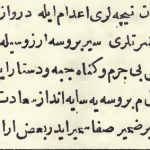 ن نیچه لری اعدام ایله درواز
سیر بروسه ارزوسیله
بی جرم و کناه جبه و دستارایله
م بروسه یه سایه انداز عادت
ضمیر صفا میر ایدر بعض ارا